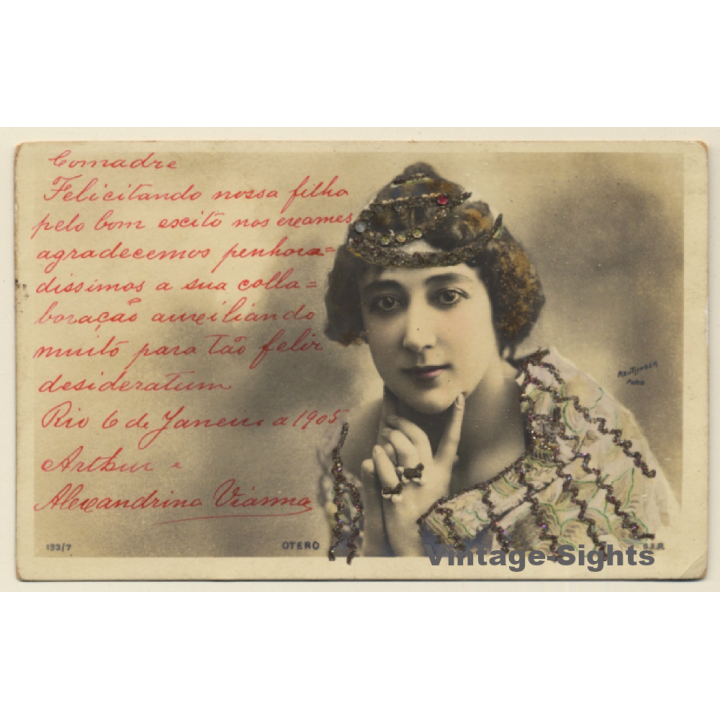 Comadre
Felicitando nossa filha
pelo bom escito nos exames
agradecemos penhora=
dissimos a sua colla=
boração auxiliando
muito para tão feliz
desideratum
Rio 6 de Janeiro a 1905
Arthur e
Alexandrina Vianna
REUTLINGER
PARIS
133/7
OTERO
S.I.P.
Vintage-Sights